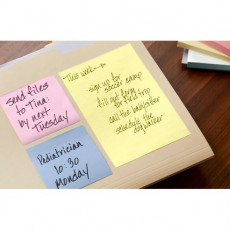 send files
to Tina
by next
Tuesday
Pediatrician
10:30
Monday
This week
sign up for
soccer camp
fill out form
for field trip
call the babysitter
schedule the
dogwalker